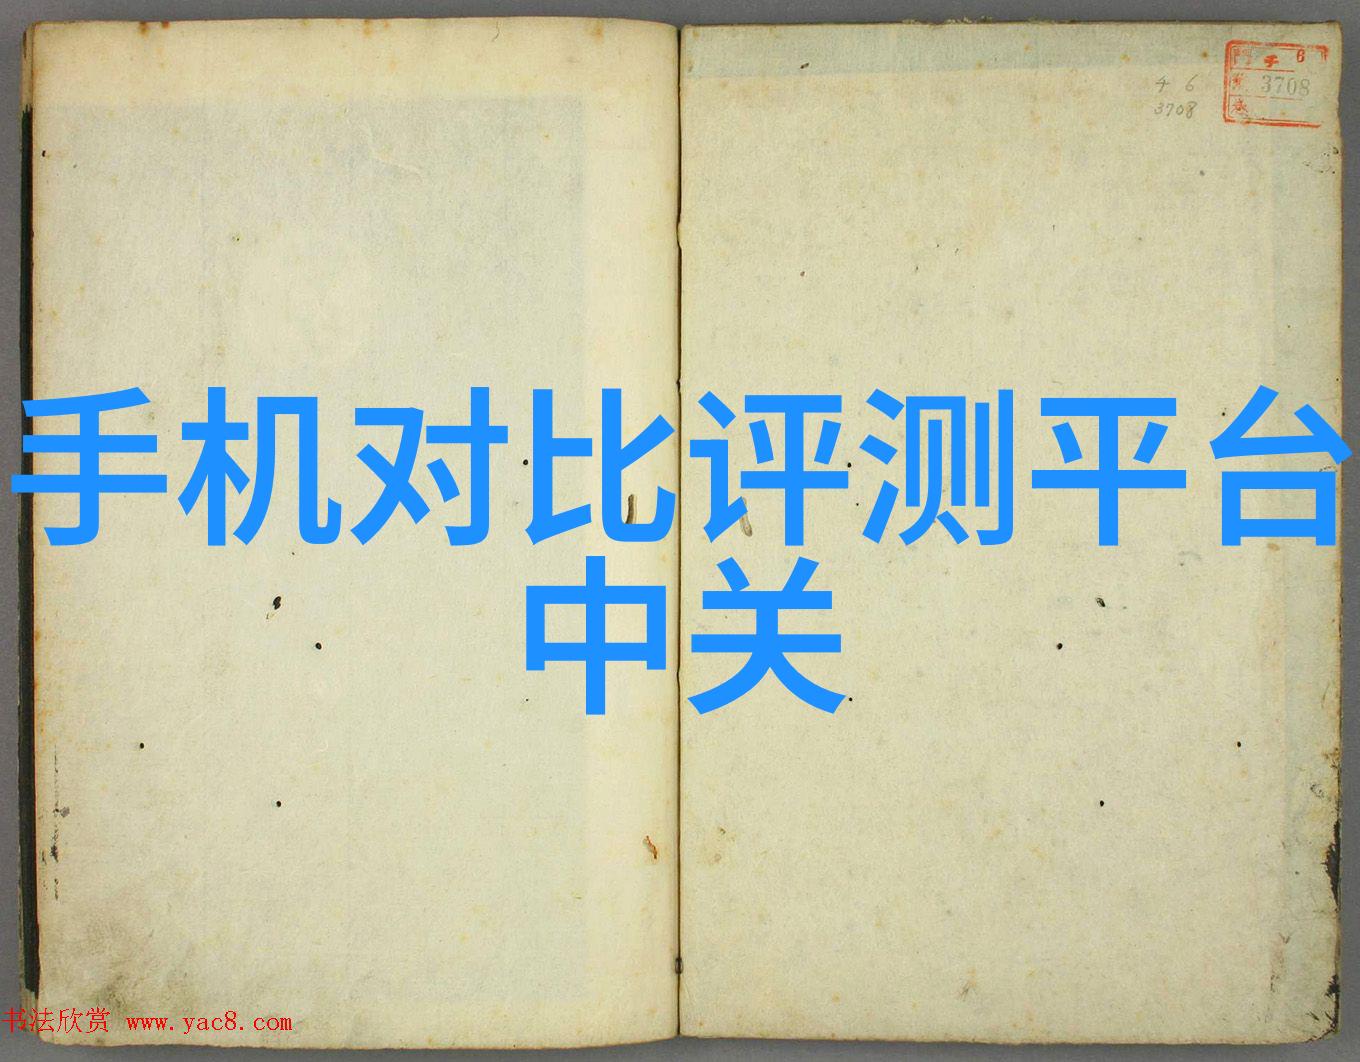 チ 6
3708
チ 6
3708
手机对比评测平台
中关
书法欣赏 www.yac8.com